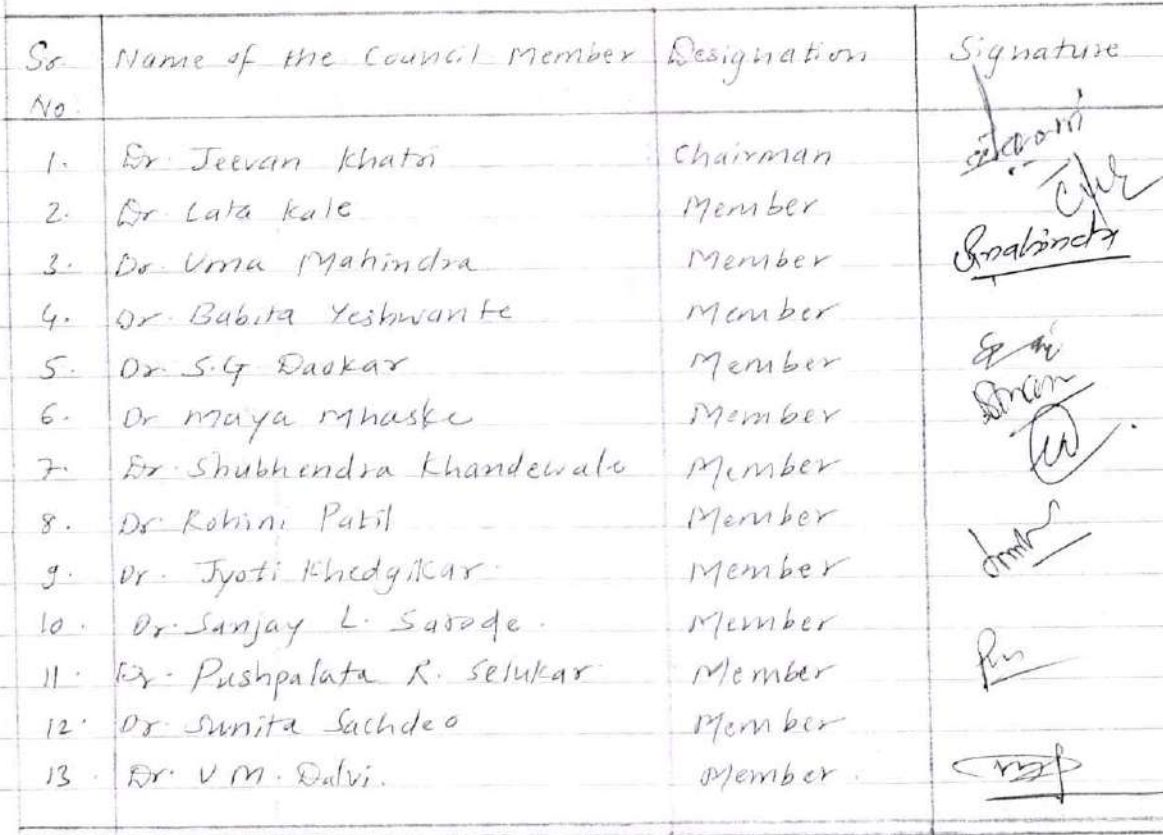 Sr. Name of the Council Member Designation Signature
No.
1. Dr. Jeevan Khatri Chairman
2. Dr. Lata Kale Member
3. Dr. Uma Mahindra Member
4. Dr. Babita Yeshwante Member
5. Dr. S.G Daokar Member
6. Dr Maya Mhaske Member
7. Dr. Shubhendra Khandewale Member
8. Dr Rohini Patil Member
9. Dr. Jyoti Khedgikar Member
10. Dr. Sanjay L. Sarode. Member
11. Dr. Pushpalata R. Selukar Member
12. Dr. Sunita Sachdeo Member
13. Dr. V M. Dalvi. Member.